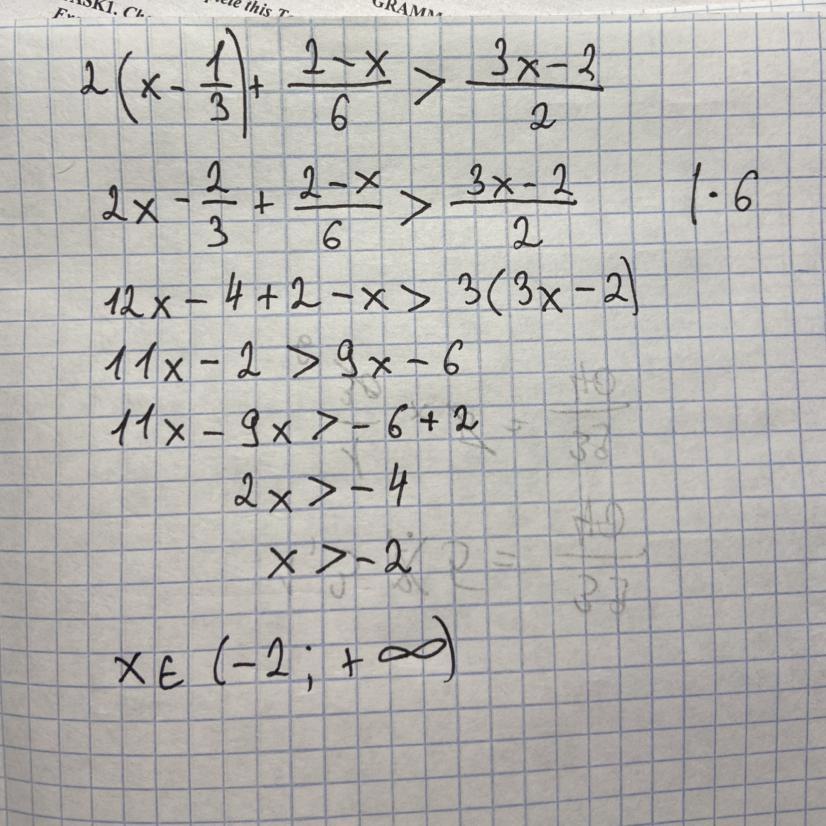 ASK1. Ch
plete this T
GRAMM
2(x - 1/3) + (2-x)/6 > (3x-2)/2
2x - 2/3 + (2-x)/6 > (3x-2)/2 | · 6
12x - 4 + 2 - x > 3(3x - 2)
11x - 2 > 9x - 6
11x - 9x > -6 + 2
2x > -4
x > -2
x ∈ (-2; +∞)